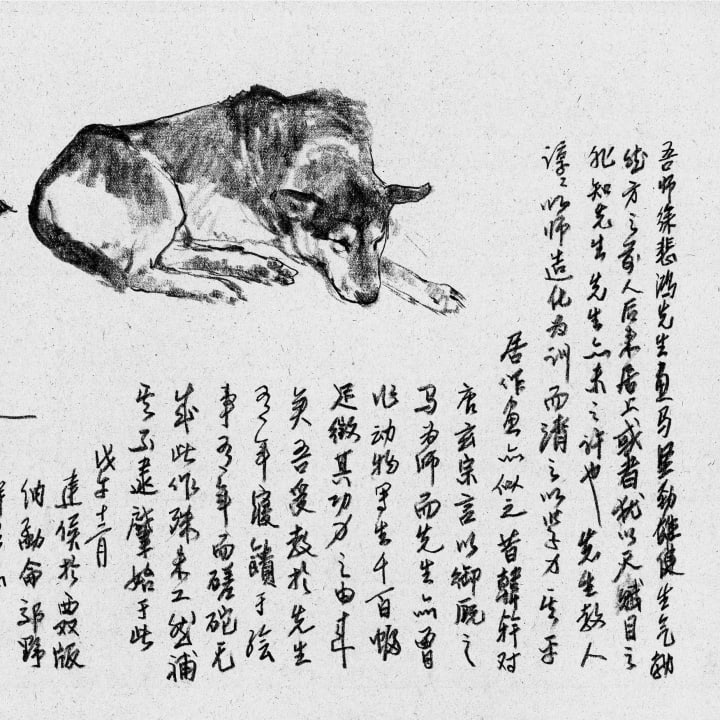 吾师徐悲鸿先生画马墨劲雄健生气勃
然方之前人后来居上或者犹以天赋目之
非知先生先生亦未之许也先生教人
谆谆以师造化为训而济之以学力其平
居作画亦似之昔韩幹对
唐玄宗言以御厩之
马为师而先生亦曾
作动物写生千百帧
足徵其功力之由来
矣吾受教于先生
有年寝馈于绘
事有年而磋砣无
成此作殊未工然浦
其不逮肇始于此
戊午十二月
建侯于西双版
纳勐仑郊野